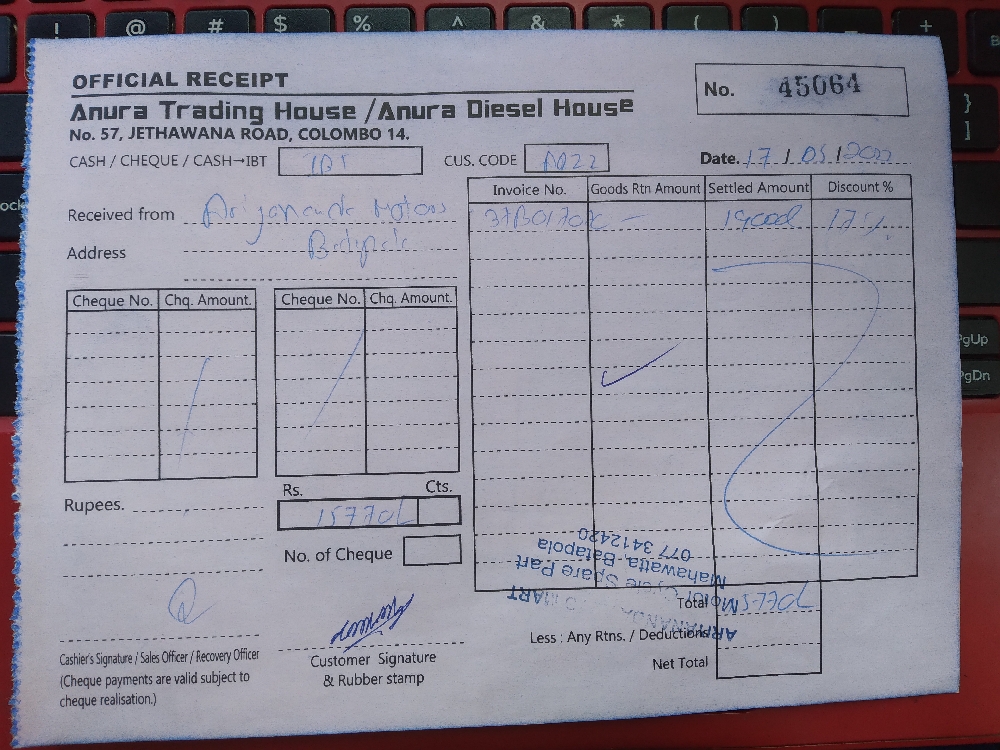 OFFICIAL RECEIPT
No. 45064
Anura Trading House / Anura Diesel House
No. 57, JETHAWANA ROAD, COLOMBO 14.
CASH / CHEQUE / CASH→IBT IBT
CUS. CODE A022
Date. 17 / 05 / 2022
Invoice No. Goods Rtn Amount Settled Amount Discount %
Received from Motors
17 %
Address
Cheque No. Chq. Amount. Cheque No. Chq. Amount.
Rupees.
Rs. Cts.
15770/-
No. of Cheque
Total 15770/-
Less : Any Rtns. / Deductions
Net Total
Cashier's Signature / Sales Officer / Recovery Officer
(Cheque payments are valid subject to
cheque realisation.)
Customer Signature
& Rubber stamp
MART
Motor Cycle Spare Part
Mahawatta, Batapola
077 3412420